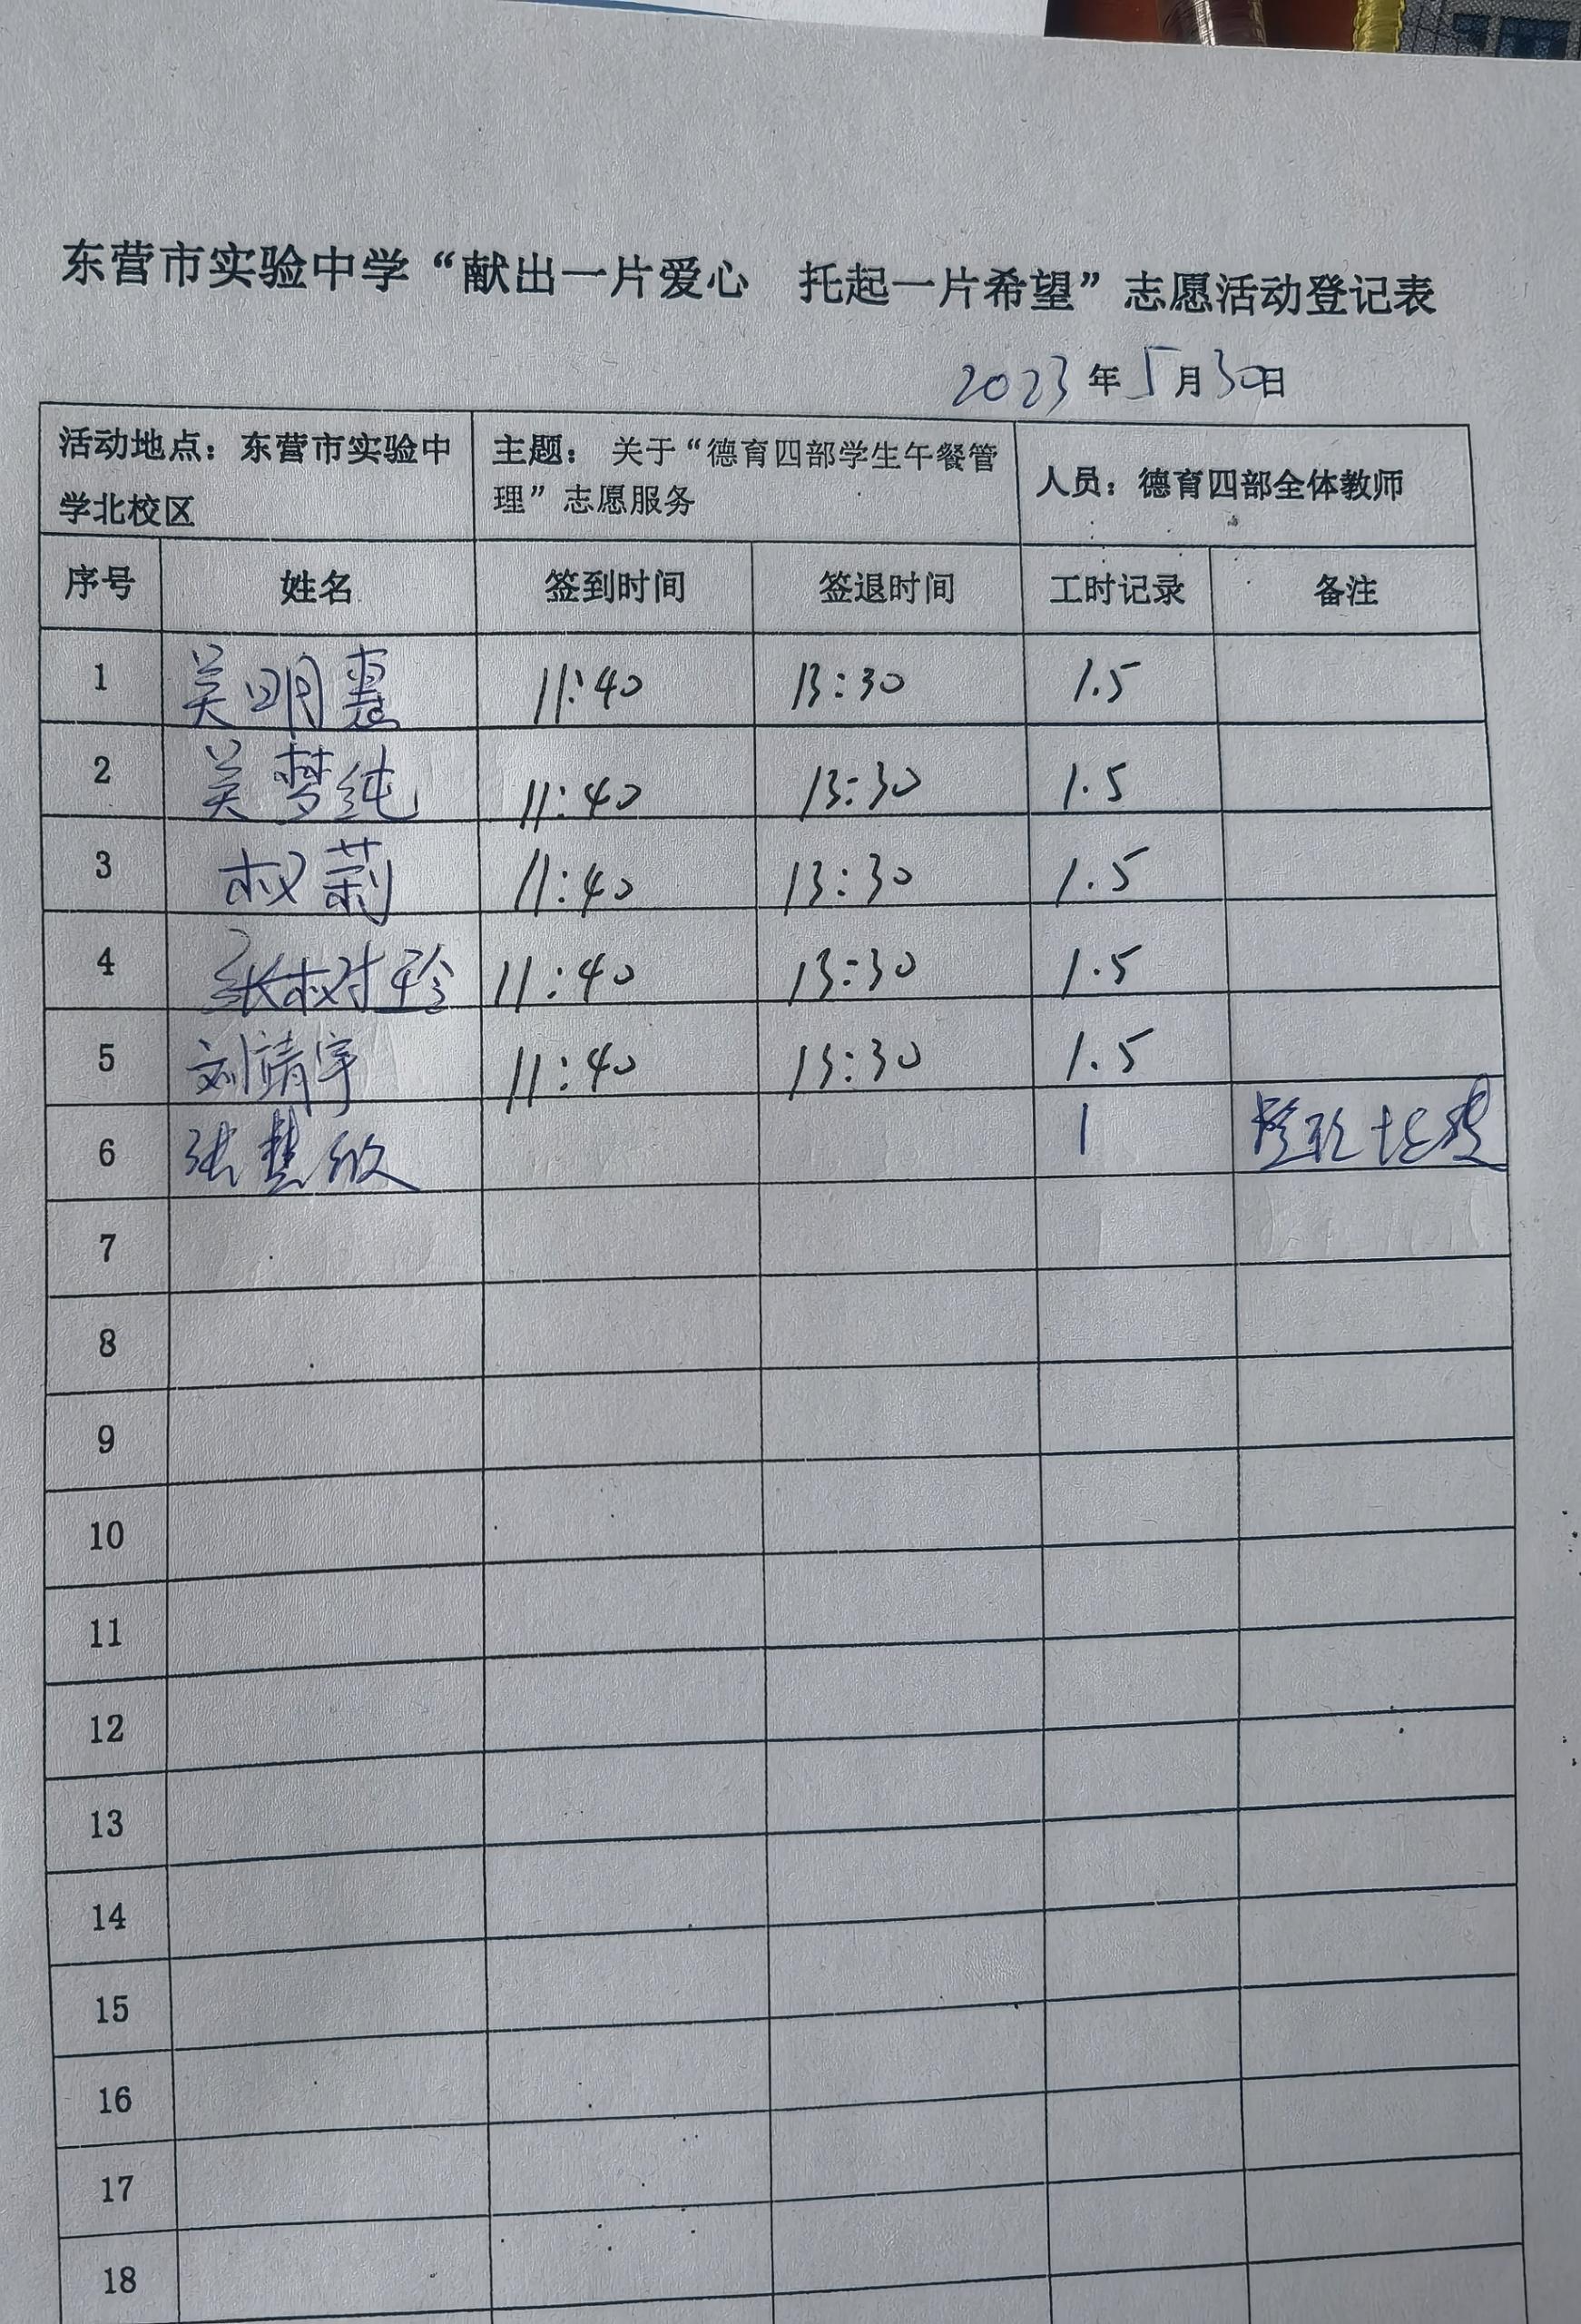 东营市实验中学“献出一片爱心 托起一片希望”志愿活动登记表
2023年5月30日
活动地点：东营市实验中学北校区 主题：关于“德育四部学生午餐管理”志愿服务 人员：德育四部全体教师
序号 姓名 签到时间 签退时间 工时记录 备注
1 吴明惠 11:40 13:30 1.5
2 吴梦纯 11:40 13:30 1.5
3 权莉 11:40 13:30 1.5
4 张树玲 11:40 13:30 1.5
5 刘靖宇 11:40 13:30 1.5
6 张慧敏 1
7
8
9
10
11
12
13
14
15
16
17
18